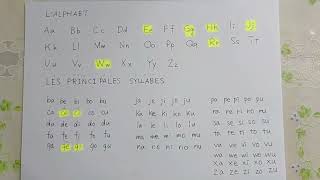 L'ALPHABET
Aa Bb Cc Dd Ee Ff Gg Hh Ii Jj
Kk Ll Mm Nn Oo Pp Qq Rr Ss Tt
Uu Vv Ww Xx Yy Zz
LES PRINCIPALES SYLLABES
ba be bi bo bu
ca ce ci co cu
da de di do du
fa fe fi fo fu
ga ge gi go gu
ja je ji jo ju
ka ke ki ko ku
la le li lo lu
ma me mi mo mu
na ne ni no nu
pa pe pi po pu
ra re ri ro ru
sa se si so su
ta te ti to tu
va ve vi vo vu
wa we wi wo wu
xa xe xi xo xu
za ze zi zo zu